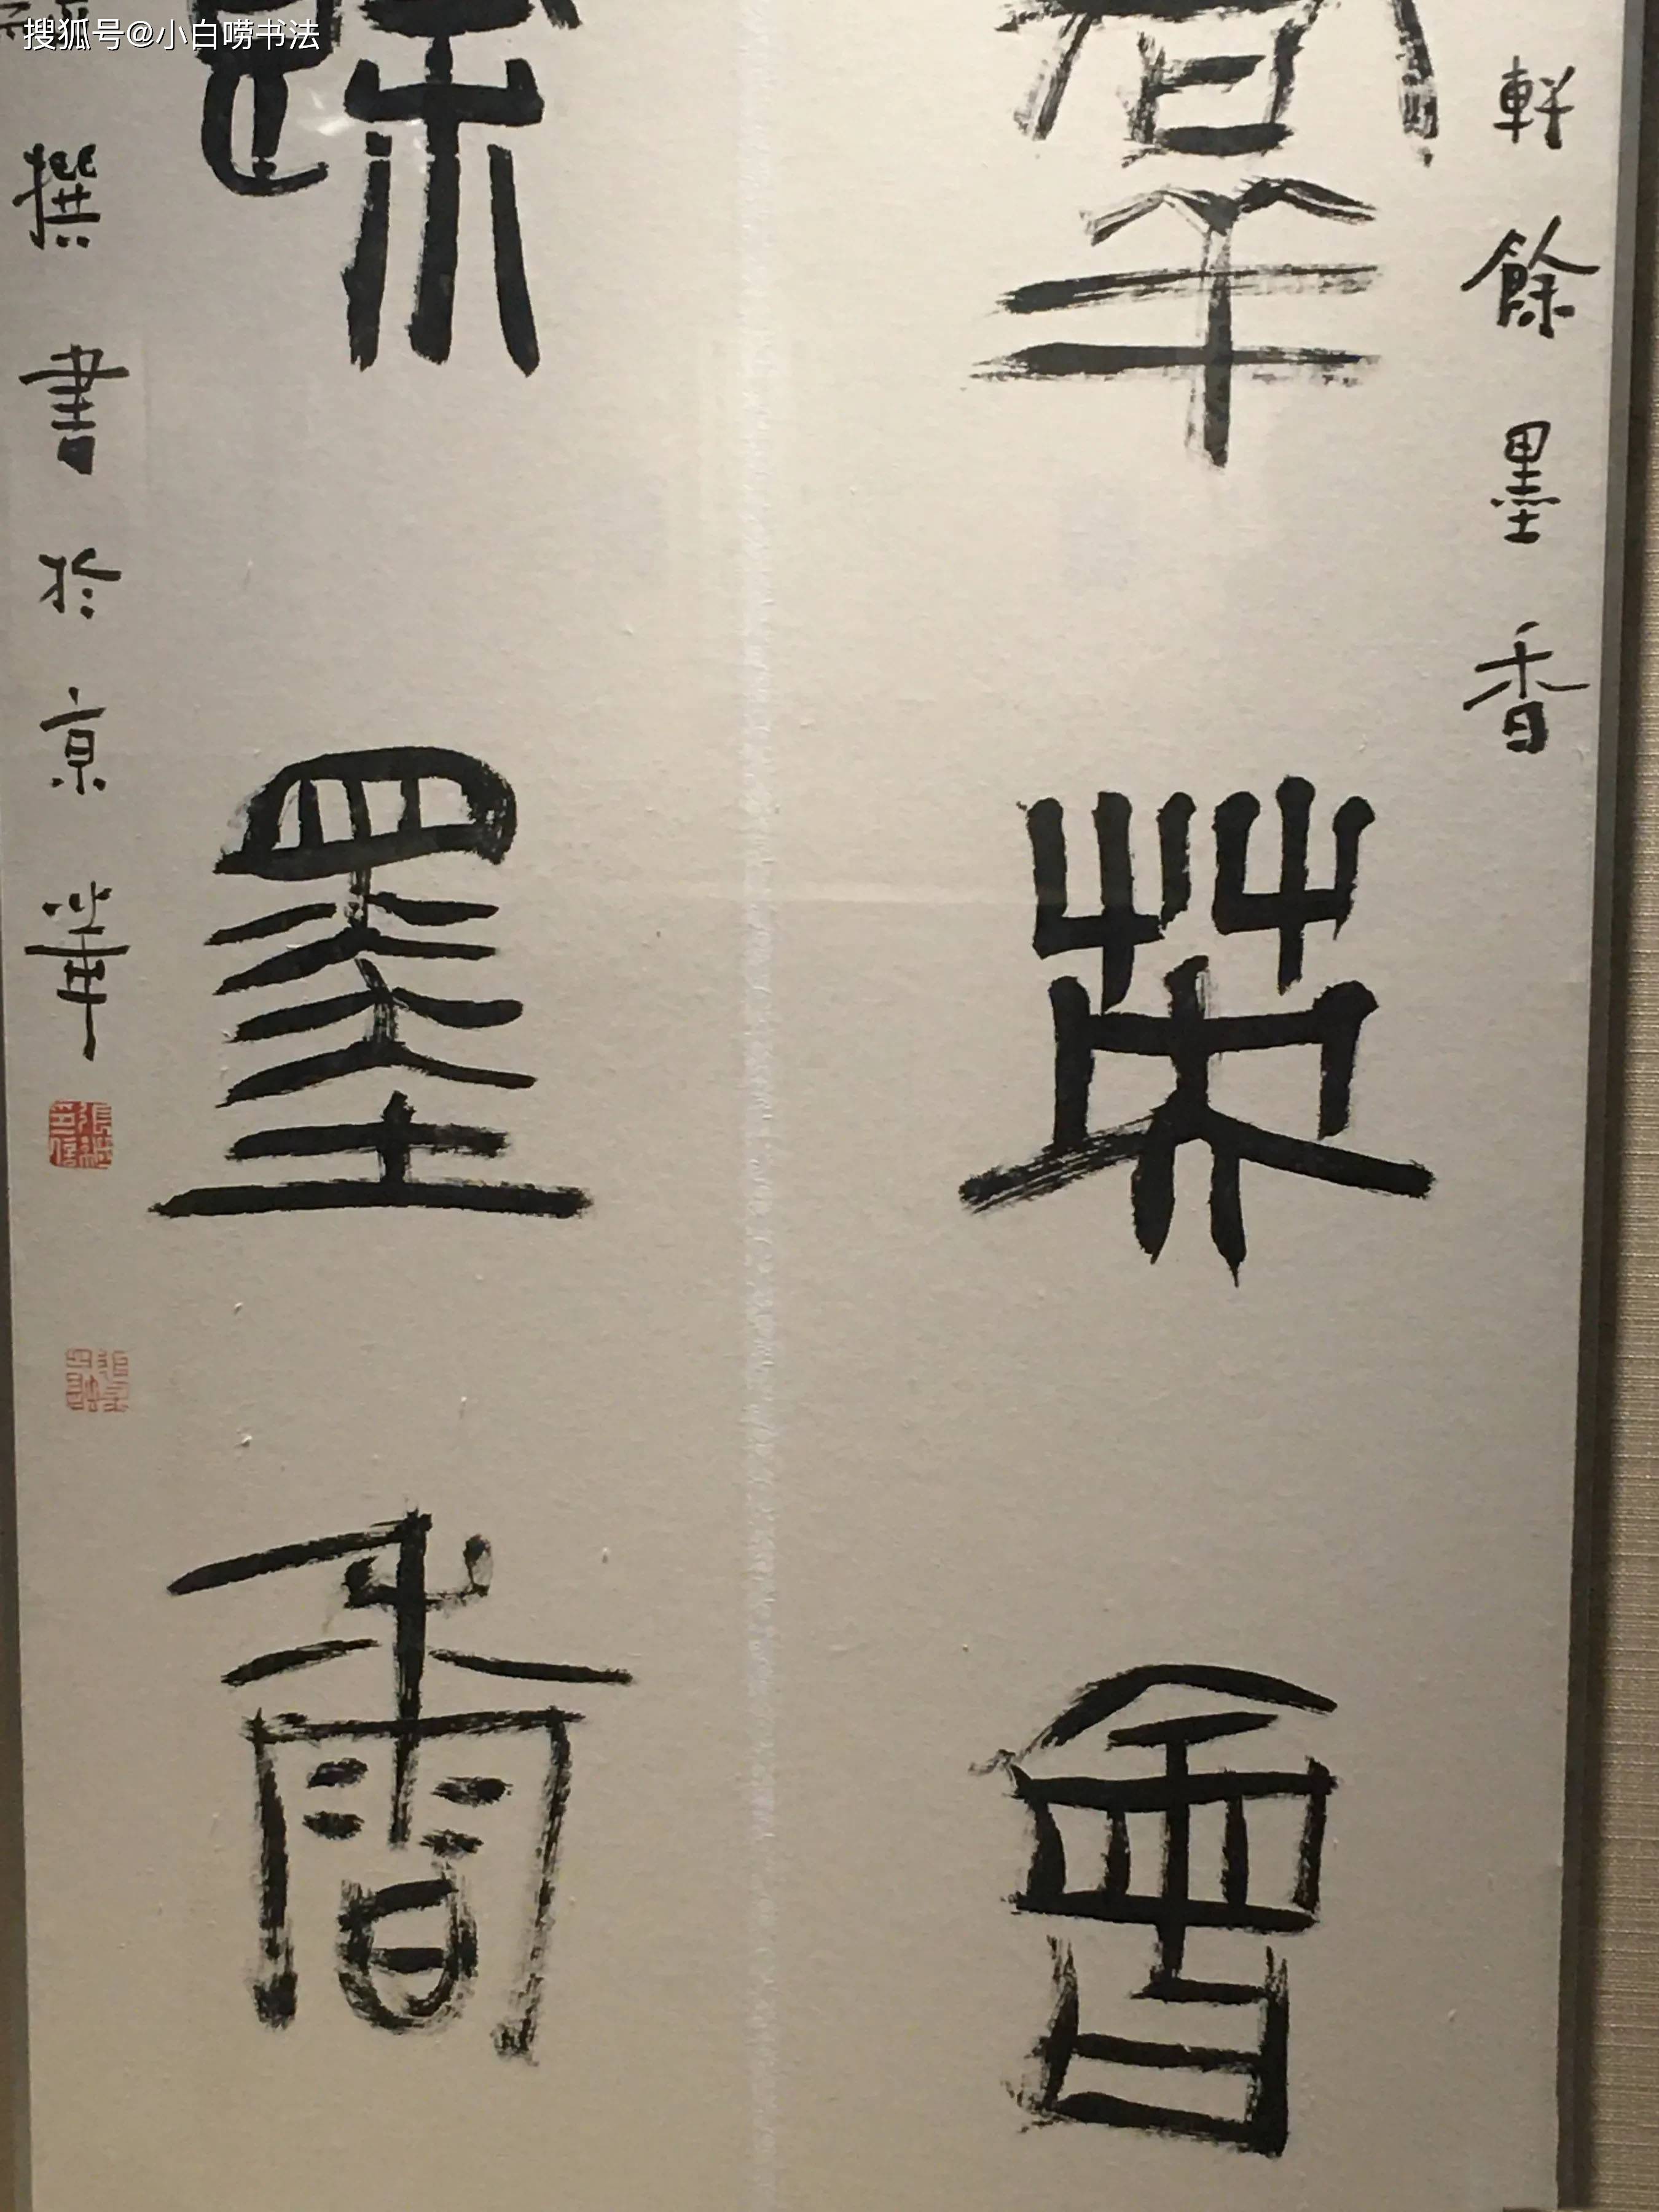 搜狐号@小白唠书法
軒餘墨香
茶會
墨香
撰書於京華